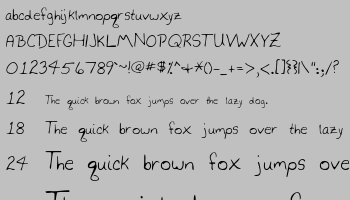 abcdefghijklmnopqrstuvwxyz
ABCDEFGHIJKLMNOPQRSTUVWXYZ
0123456789`~!@#$%^+*()-_+=>,<.[]{}|\":;/?
12 The quick brown fox jumps over the lazy dog.
18 The quick brown fox jumps over the lazy
24 The quick brown fox jumps ove